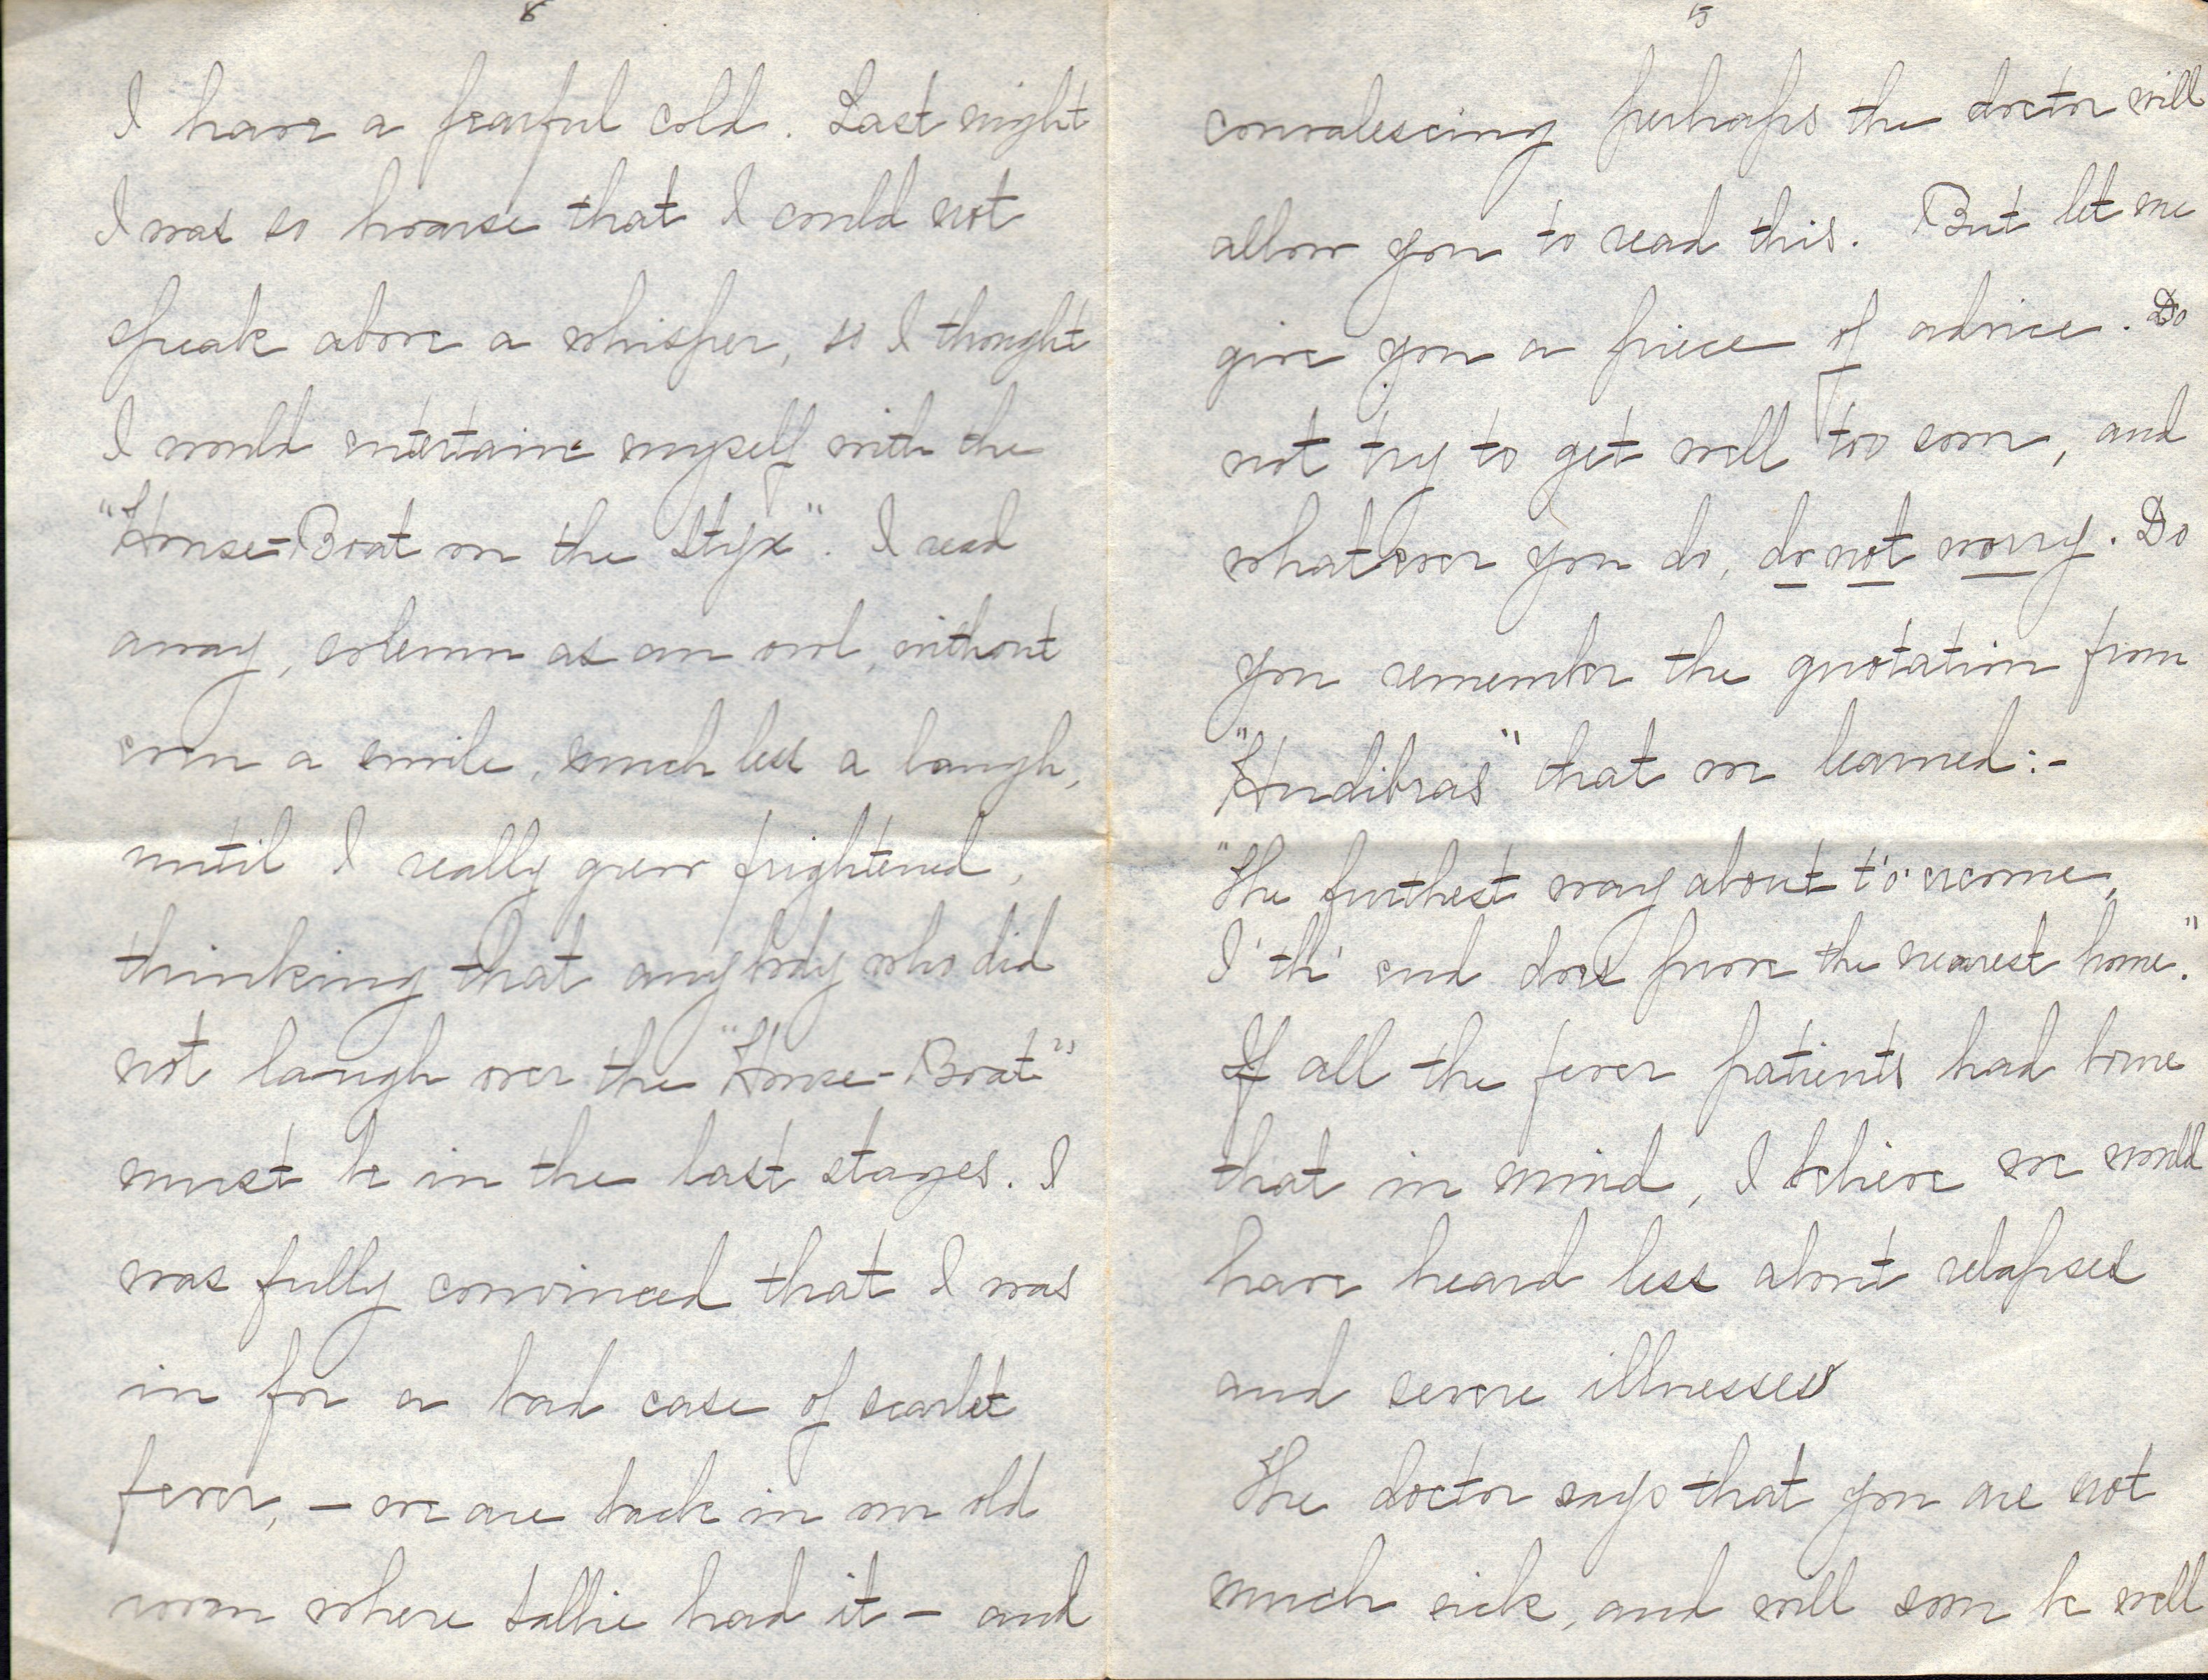 8
I have a fearful cold. Last night
I was so hoarse that I could not
speak above a whisper, so I thought
I would entertain myself with the
"House-Boat on the Styx". I read
away, solemn as an owl, without
even a smile, much less a laugh,
until I really grew frightened,
thinking that anybody who did
not laugh over the "House-Boat"
must be in the last stages. I
was fully convinced that I was
in for a bad case of scarlet
fever, – we are back in our old
room where Sallie had it – and
5
convalescing perhaps the doctor will
allow you to read this. But let me
give you a piece of advice. Do
not try to get well too soon, and
whatever you do, do not worry. Do
you remember the quotation from
"Hudibras" that we learned:-
"The furthest way about t'o'ercome,
I'th' end does prove the nearest home."
If all the fever patients had borne
that in mind, I believe we would
have heard less about relapses
and severe illnesses
The doctor says that you are not
much sick, and will soon be well